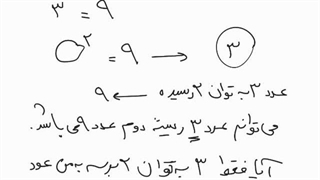 ۳ = ۹
○² = ۹ → ۳
عدد ۳ به توان ۲ رسیده ← ۹
می‌توانم عدد ۳ ریشهٔ دوم عدد ۹ می باشد.
آیا فقط ۳ به توان ۲ برسه به من عدد